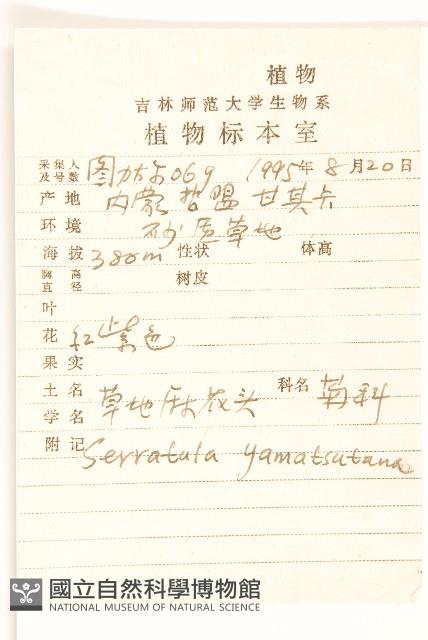 植物
吉林师范大学生物系
植物标本室
采集人及号数 图力古尔069 1995年8月20日
产地 内蒙哲盟甘其卡
环境 砂质草地
海拔 380m 性状 体高
胸高直径 树皮
叶
花 红紫色
果实
土名 草地麻花头 科名 菊科
学名
附记 Serratula yamatsutana
國立自然科學博物館
NATIONAL MUSEUM OF NATURAL SCIENCE